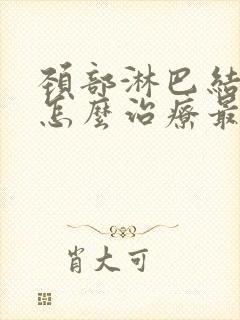 頚部淋巴結
怎麼治療最
肖大可